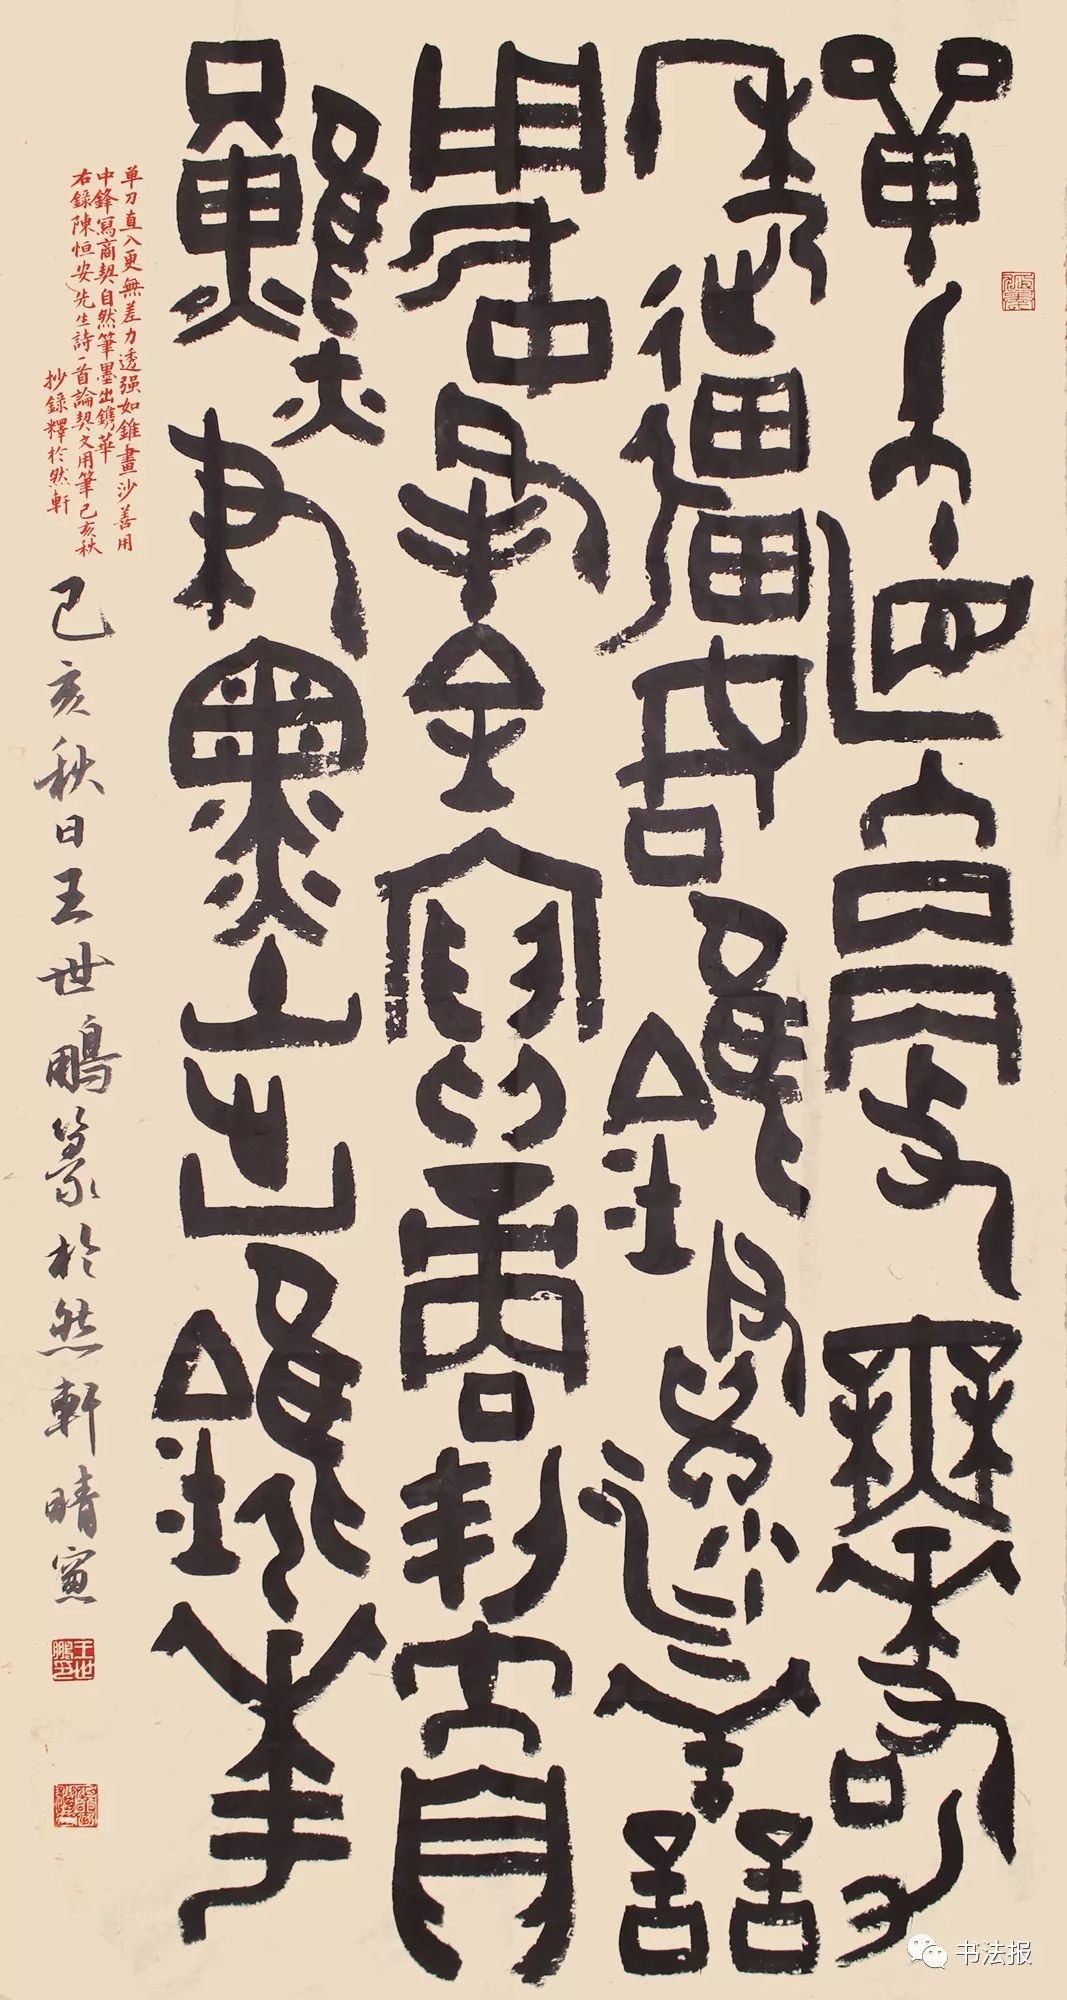 單刀直入更無差力
透强如錐畫沙善
用中鋒寫商契自
然筆墨出鐫華
单刀直入更無差力透强如錐畫沙善用
中鋒寫商契自然筆墨出鐫華
右錄陳恒安先生詩一首論契文用筆己亥秋
抄錄釋於然軒
己亥秋日王世鵬篆於然軒晴窻
王世鵬印
书法报